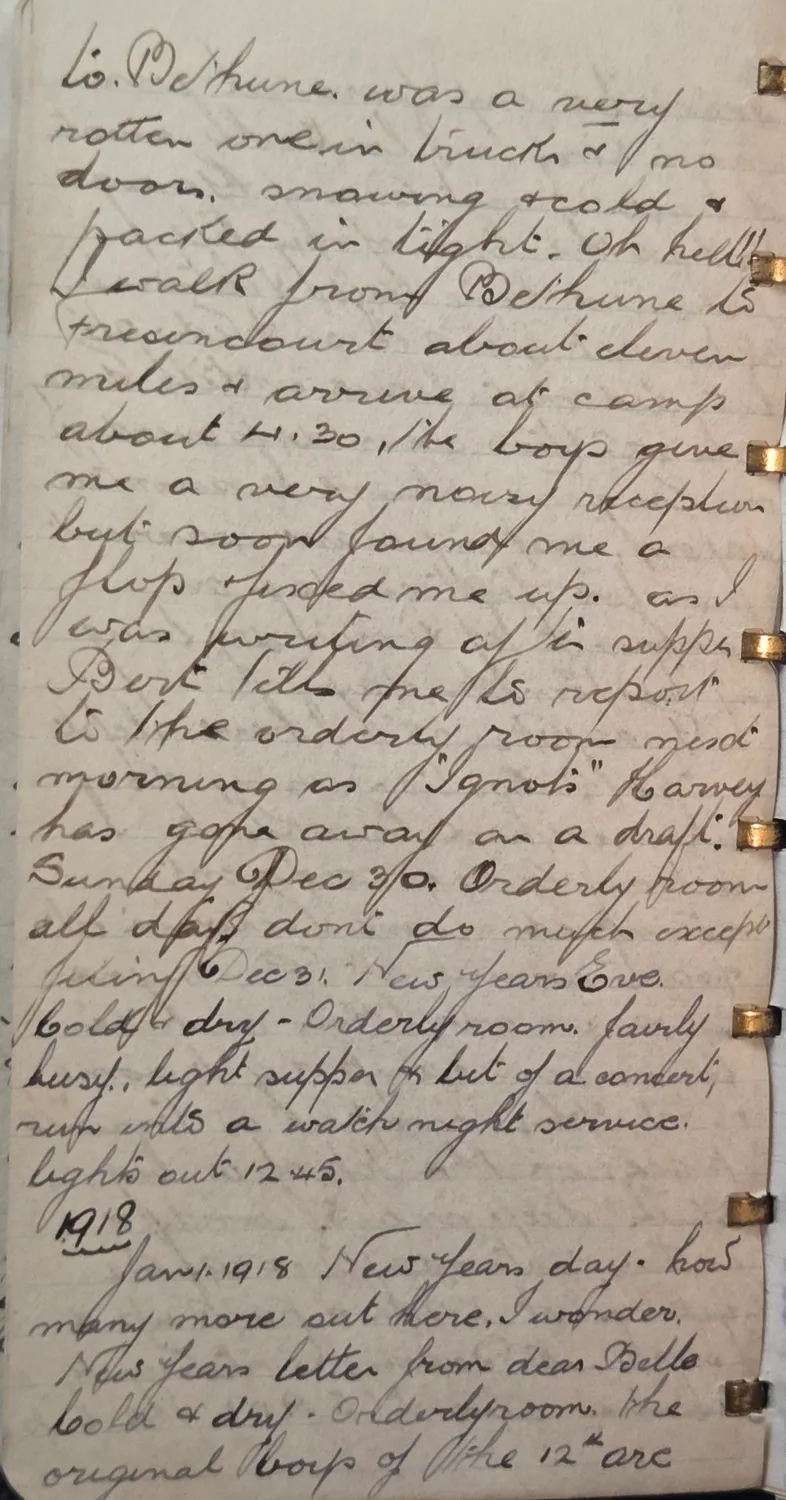 to. Bethune. was a very
rotten one in trucks & no
doors. snowing & cold &
packed in tight. Oh hell!!
I walk from Bethune to
Fresincourt about eleven
miles & arrive at camp
about 4.30, the boys give
me a very noisy reception
but soon found me a
flop & fixed me up. as I
was writing after supper
Bert tells me to report
to the orderly room next
morning as "Ignots" Harvey
has gone away on a draft.
Sunday Dec 30. Orderly room
all day dont do much except
filing Dec 31. New Years Eve.
Cold & dry - Orderly room. fairly
busy. light supper & bit of a concert,
run into a watch night service.
lights out 12 45.
1918
Jan 1. 1918 New Years day. how
many more out here, I wonder.
New Years letter from dear Belle
Cold & dry. Orderly room. the
original boys of the 12th are